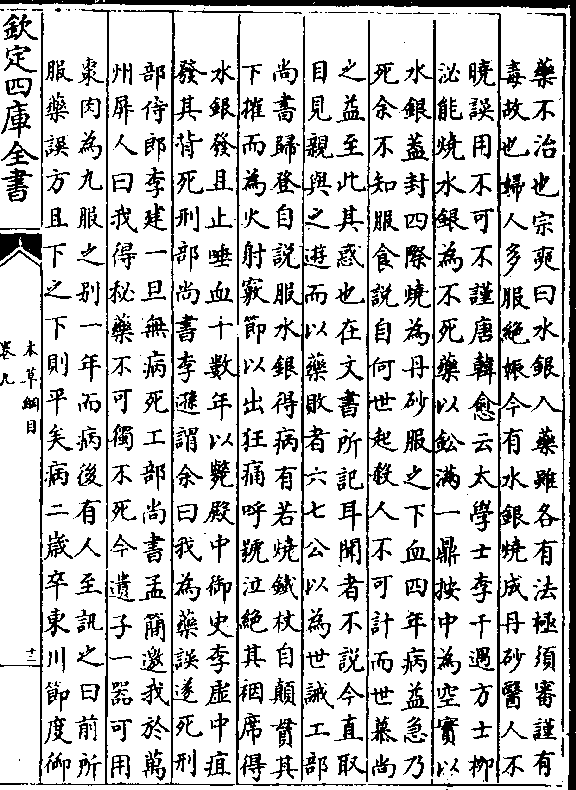 藥不治也宗奭曰水銀入藥雖各有法極須審謹有
毒故也婦人多服絶娠今有水銀燒成丹砂醫人不
曉誤用不可不謹唐韓愈云太學士李干遇方士柳
泌能燒水銀為不死藥以鉛滿一鼎按中為空實以
水銀葢封四際燒為丹砂服之下血四年病益急乃
死余不知服食説自何世起殺人不可計而世慕尚
之益至此其惑也在文書所記耳聞者不説今直取
目見親與之遊而以藥敗者六七公以為世誡工部
尚書歸登自説服水銀得病有若燒鐵杖自顛貫其
下摧而為火射竅節以出狂痛呼號泣絶其裀席得
水銀發且止唾血十數年以斃殿中御史李虚中疽
發其背死刑部尚書李遜謂余曰我為藥誤遂死刑
部侍郎李建一旦無病死工部尚書孟簡邀我於萬
州屏人曰我得秘藥不可獨不死今遺子一器可用
棗肉為丸服之别一年而病後有人至訊之曰前所
服藥誤方且下之下則平矣病二歲卒東川節度御
欽定四庫全書
本草綱目
卷九
十三